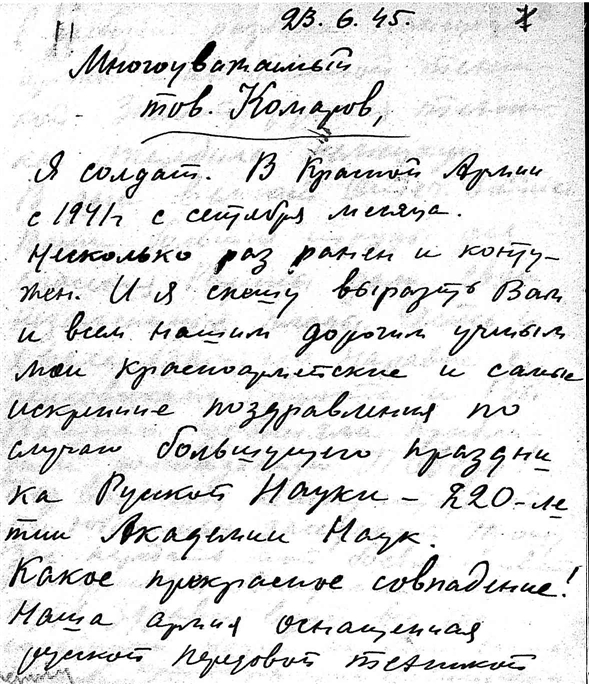 23. 6. 45.
Многоуважаемый
тов. Комаров,
Я солдат. В Красной Армии
с 1941 г с сентября месяца.
Несколько раз ранен и конту-
жен. И я спешу выразть Вам
и всем нашим дорогим ученым
мои красноармейские и самые
искренние поздравления по
случаю большущего праздни-
ка Руской Науки – 220-ле-
тии Академии Наук.
Какое прекрасное совпадение!
Наша армия оснащенная
руской передовой техникой